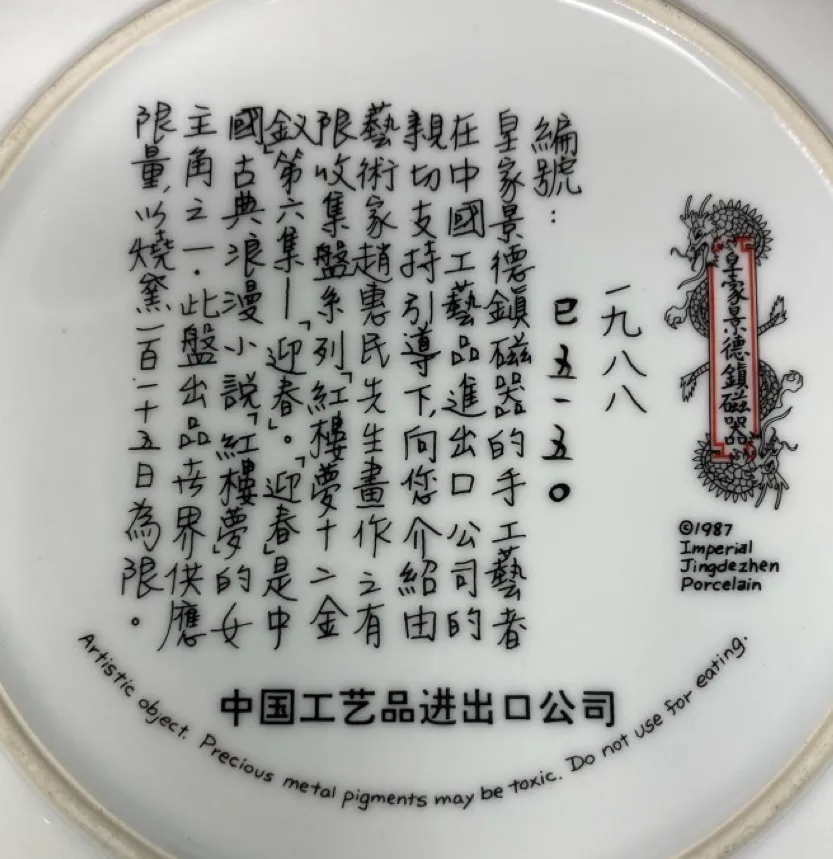 皇家景德鎮磁器
©1987
Imperial
Jingdezhen
Porcelain
一九八八
編號：
巳五一五〇
皇家景德鎮磁器的手工藝者
在中國工藝品進出口公司的
親切支持引導下，向您介紹由
藝術家趙惠民先生畫作之有
限收集盤系列「紅樓夢十二金
釵」第六集—「迎春」。「迎春」是中
國古典浪漫小說「紅樓夢」的女
主角之一．此盤出品世界供應
限量，以燒窯一百一十五日為限。
中国工艺品进出口公司
Artistic object. Precious metal pigments may be toxic. Do not use for eating.